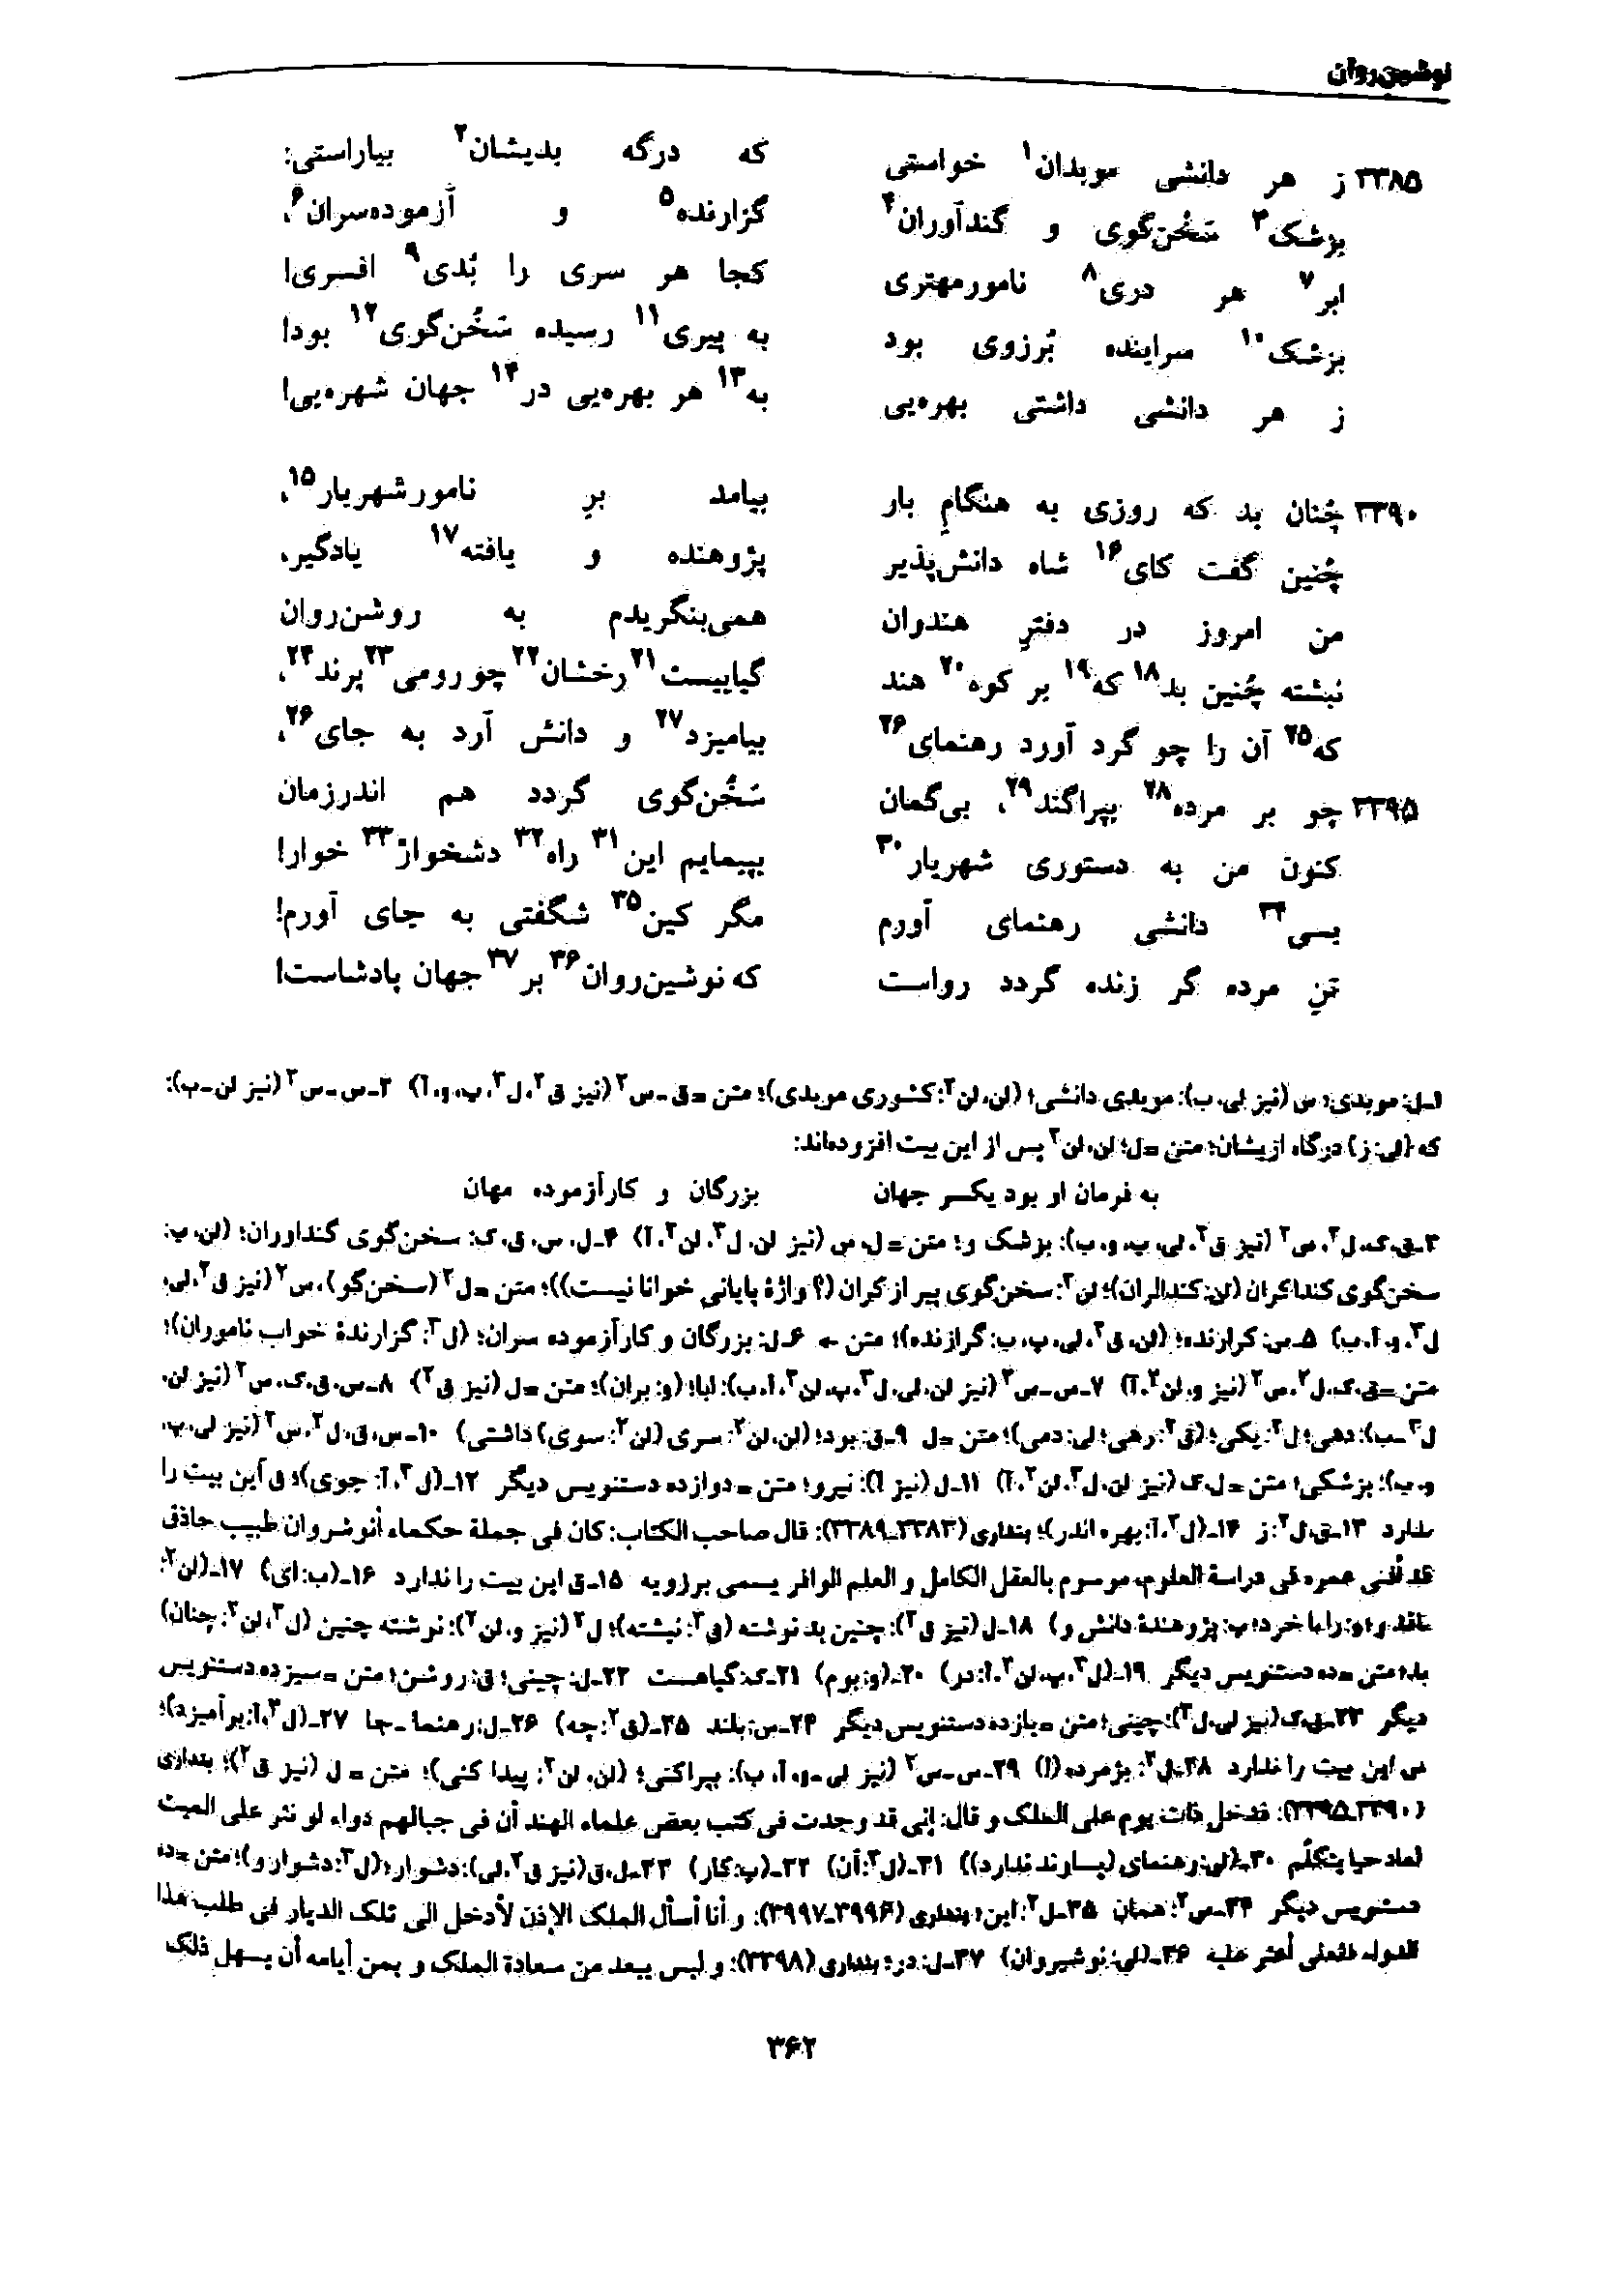 نوشین‌روان
۳۳۸۵ ز هر دانشی موبدان۱ خواستی که درگه بدیشان۲ بیاراستی:
بزشک۳ سَخُن‌گوی و گندآوران۴ گزارنده۵ و آزموده‌سران۶،
ابر۷ هر دری۸ نامورمهتری کجا هر سری را بُدی۹ افسری!
بزشک۱۰ سراینده بُرزوی بود به پیری۱۱ رسیده سَخُن‌گوی۱۲ بود!
ز هر دانشی داشتی بهره‌یی به۱۳ هر بهره‌یی در۱۴ جهان شهره‌یی!
۳۳۹۰ چُنان بد که روزی به هنگامِ بار بیامد برِ نامورشهریار۱۵،
چُنین گفت کای۱۶ شاه دانش‌پذیر پژوهنده و یافته۱۷ یادگیر،
من امروز در دفترِ هندوان همی‌بنگریدم به روشن‌روان
نبشته چُنین بد۱۸ که۱۹ بر کوه۲۰ هند گیاییست۲۱ رخشان۲۲ چو رومی۲۳ پرند۲۴،
که۲۵ آن را چو گرد آورد رهنمای۲۶ بیامیزد۲۷ و دانش آرد به جای۲۶،
۳۳۹۵ چو بر مرده۲۸ بپراگند۲۹، بی‌گمان سَخُن‌گوی گردد هم اندرزمان
کنون من به دستوری شهریار۳۰ بپیمایم این۳۱ راه۳۲ دشخواژ۳۳ خوار!
بسی۳۴ دانشی رهنمای آورم مگر کین۳۵ شگفتی به جای آورم!
تنِ مرده گر زنده گردد رواست که نوشین‌روان۳۶ بر۳۷ جهان پادشاست!
۱ـ ل: موبدی؛ س (نیز لی، ب): موبدی دانشی؛ (لن، لن۲: کشوری موبدی)؛ متن = ق ـ س۲ (نیز ق۲، ل۳، پ، و، آ) ۲ـ س ـ س۲ (نیز لن ـ ب):
که (لی: ز) درگاه ازیشان؛ متن = ل؛ لن، لن۲ پس از این بیت افزوده‌اند:
به فرمان او بود یکسر جهان بزرگان و کارآزموده مهان
۳ـ ق، ک، ل۲، س۲ (نیز ق۲، لی، پ، و، ب): بزشک و؛ متن = ل، س (نیز لن، ل۳، لن۲، آ) ۴ـ ل، س، ق، ک: سخن‌گوی گنداوران؛ (لن، پ:
سخن‌گوی کنداکران (لن: کندالران)؛ لن۲: سخن‌گوی پیر از کران (؟ واژهٔ پایانی خوانا نیست))؛ متن = ل۲ (سخن‌گو)، س۲ (نیز ق۲، لی،
ل۳، و، آ، ب) ۵ـ س: کرازنده؛ (لن، ق۲، لی، پ، ب: گرازنده)؛ متن ← ۶ـ ل: بزرگان و کارآزموده سران؛ (ل۳: گزارندهٔ خواب ناموران)؛
متن = ق، ک، ل۲، س۲ (نیز و، لن۲، آ) ۷ـ س ـ س۲ (نیز لن، لی، ل۳، پ، لن۲، آ، ب): ابا؛ (و: بران)؛ متن = ل (نیز ق۲) ۸ـ س، ق، ک، س۲ (نیز لن،
ل۳ ـ ب): دهی؛ ل۲: یکی؛ (ق۲: رهی؛ لی: دمی)؛ متن = ل ۹ـ ق: بود؛ (لن، لن۲: سری (لن۲: سوی) داشتی) ۱۰ـ س، ق، ل۲، س۲ (نیز لی، پ،
و، ب): بزشکی؛ متن = ل، ک (نیز لن، ل۳، لن۲، آ) ۱۱ـ ل (نیز آ): نیرو؛ متن = دوازده دستنویس دیگر ۱۲ـ (ل۳، آ: جوی)؛ ق این بیت را
ندارد ۱۳ـ ق، ل۲: ز ۱۴ـ (ل۳، آ: بهره اندر)؛ بنداری (۳۳۸۳ـ۳۳۸۹): قال صاحب الکتاب: کان فی جملة حکماء أنوشروان طبیب حاذق
قد أفنی عمره فی دراسة العلوم، موسوم بالعقل الکامل و العلم الوافر یسمی برزویه ۱۵ـ ق این بیت را ندارد ۱۶ـ (ب: ای) ۱۷ـ (لن۲:
۱۸ـ ل (نیز ق۲): چنین بد نوشته (ق۲: نبشته)؛ ل۲ (نیز و، لن۲): نوشته چنین (ل۳، لن۲: چنان)
بد؛ متن = ده دستنویس دیگر ۱۹ـ (ل۳، پ، لن۲، آ: در) ۲۰ـ (و: بوم) ۲۱ـ ک: گیاهست ۲۲ـ ل: چینی؛ ق: روشن؛ متن = سیزده دستنویس
دیگر ۲۳ـ ق، ک (نیز لی، ل۳): چینی؛ متن = یازده دستنویس دیگر ۲۴ـ س: بلند ۲۵ـ (ق۲: چه) ۲۶ـ ل: رهنما ـ جا ۲۷ـ (ل۳، آ: برآمیزد)؛
س این بیت را ندارد ۲۸ـ ل۲: بژمرده (!) ۲۹ـ س ـ س۲ (نیز لی ـ و، آ، ب): بپراکنی؛ (لن، لن۲: پیدا کنی)؛ متن = ل (نیز ق۲)؛ بنداری
(۳۳۹۰ـ۳۳۹۵): فدخل ذات یوم علی الملک و قال: إنی قد وجدت فی کتب بعض علماء الهند أن فی جبالهم دواء لو نثر علی المیت
لعاد حیا یتکلّم ۳۰ـ (لی: رهنمای (پساوند ندارد)) ۳۱ـ (ل۳: آن) ۳۲ـ (پ: کار) ۳۳ـ ل، ق (نیز ق۲، لی): دشوار؛ (ل۳: دشوار و)؛ متن = ده
دستنویس دیگر ۳۴ـ س۲: همان ۳۵ـ ل۲: این؛ بنداری (۳۹۹۶ـ۳۹۹۷): و أنا أسأل الملک الإذن لأدخل الی تلک الدیار فی طلب هذا
الدواء فلعلی أعثر علیه ۳۶ـ (لی: نوشیروان) ۳۷ـ ل: در؛ بنداری (۳۳۹۸): و لیس یبعد من سعادة الملک و یمن أیامه أن یسهل ذلک
۳۶۲